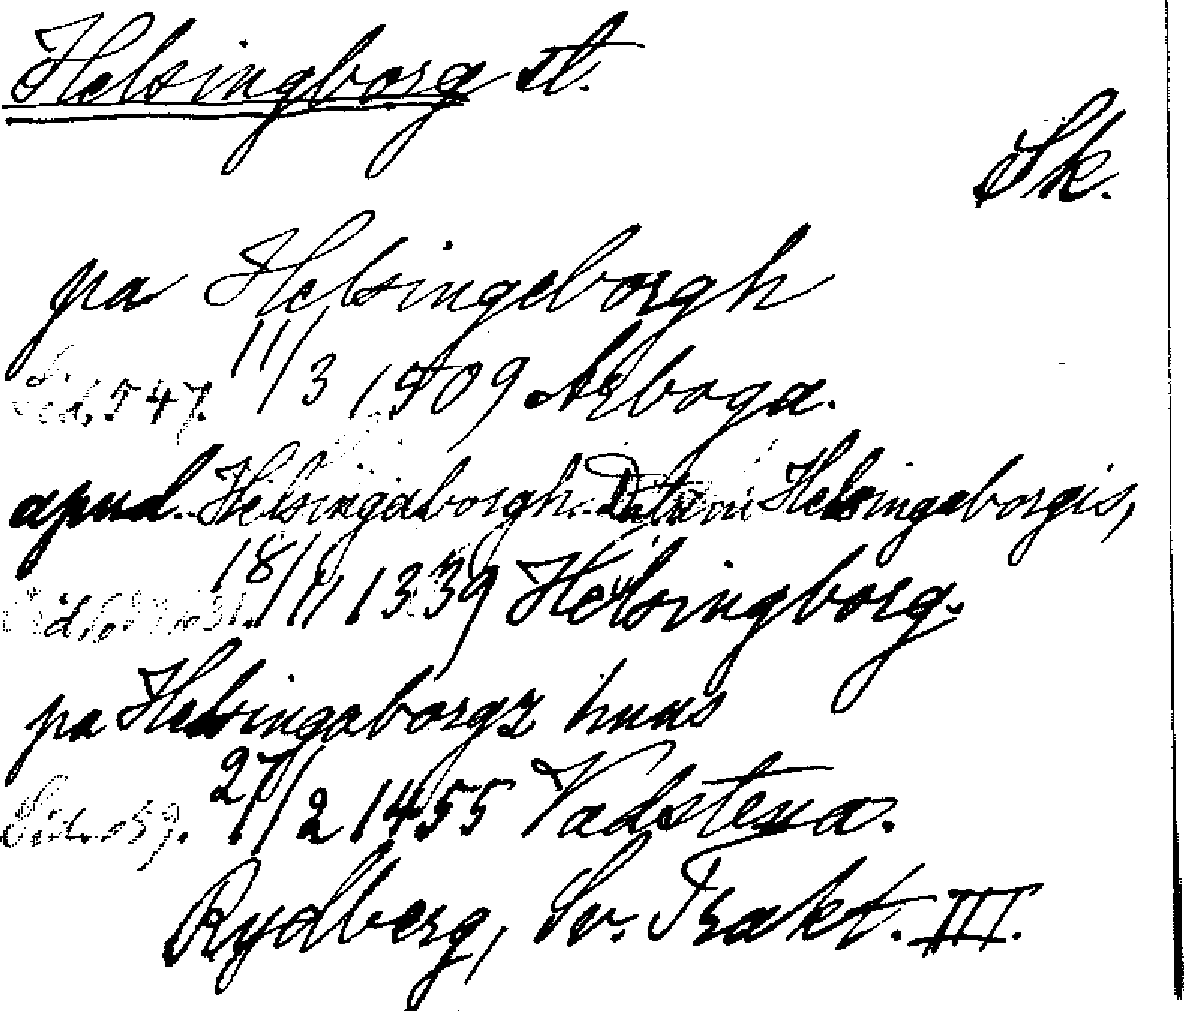 Helsingborg st.
Sk.
pa Helsingeborgh
Sid. 547. 11/3 1509 Arboga.
apud. Helsingaborgh. Datum Helsingaborgis,
Sid. 18/11 1339 Helsingborg.
pa Helsingaborgz huus
Sid. 59. 27/2 1455 Vadstena.
Rydberg, Sv. Trakt. III.